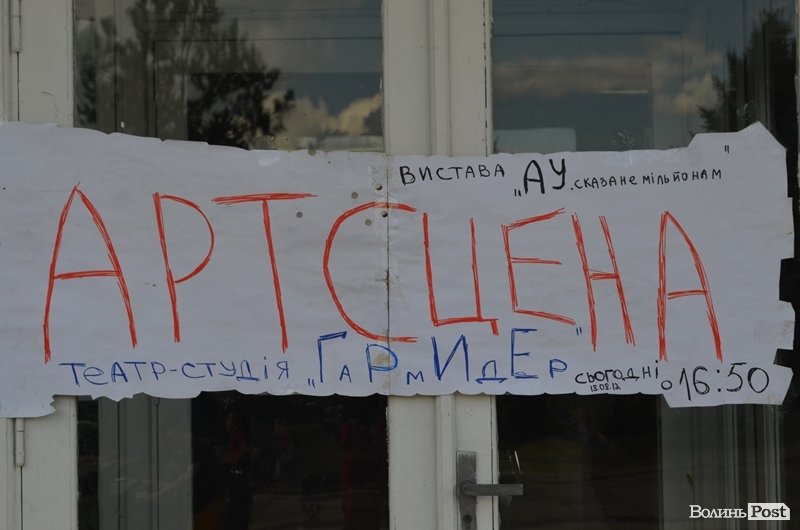 ВИСТАВА „АУ.СКАЗАНЕ МІЛЬЙОНАМ"
АРТСЦЕНА
ТЕАТР-СТУДІЯ „ГАРМИДЕР"
СЬОГОДНІ о 16:50
18.08.12
ВолиньPost